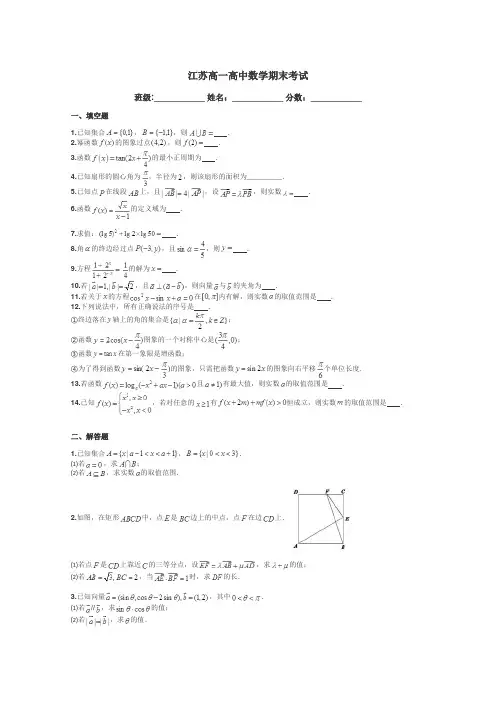 江苏高一高中数学期末考试
班级:____________ 姓名:____________ 分数:____________
一、填空题
1.已知集合A={0,1}，B={-1,1}，则A⋃B=　．
2.幂函数f(x)的图象过点(4,2)，则f(2)=　．
3.函数f(x)=tan(2x+π/4)的最小正周期为　．
4.已知扇形的圆心角为π/3，半径为2，则该扇形的面积为_________．
5.已知点P在线段AB上，且|AB|=4|AP|，设AP=λPB，则实数λ=　．
6.函数f(x)=√x/(x-1)的定义域为　．
7.求值：(lg5)²+lg2×lg50=　．
8.角α的终边经过点P(-3,y)，且sinα=4/5，则y=　．
9.方程(1+2ˣ)/(1+2⁻ˣ)=1/4的解为x=　．
10.若|a|=1,|b|=√2，且a⊥(a-b)，则向量a与b的夹角为　．
11.若关于x的方程cos²x-sinx+a=0在[0,π]内有解，则实数a的取值范围是　．
12.下列说法中，所有正确说法的序号是　．
①终边落在y轴上的角的集合是{α|α=kπ/2,k∈Z}；
②函数y=2cos(x-π/4)图象的一个对称中心是(3π/4,0)；
③函数y=tanx在第一象限是增函数；
④为了得到函数y=sin(2x-π/3)的图象，只需把函数y=sin2x的图象向右平移π/6个单位长度.
13.若函数f(x)=logₐ(-x²+ax-1)(a>0且a≠1)有最大值，则实数a的取值范围是　．
14.已知f(x)={x²,x≥0 -x²,x<0，若对任意的x≥1有f(x+2m)+mf(x)>0恒成立，则实数m的取值范围是　．
二、解答题
1.已知集合A={x|a-1<x<a+1}，B={x|0<x<3}．
(1)若a=0，求A⋂B；
(2)若A⊆B，求实数a的取值范围．
2.如图，在矩形ABCD中，点E是BC边上的中点，点F在边CD上．
D F C
E
A B
(1)若点F是CD上靠近C的三等分点，设EF=λAB+μAD，求λ+μ的值；
(2)若AB=√3,BC=2，当AE·BF=1时，求DF的长．
3.已知向量a=(sinθ,cosθ-2sinθ),b=(1,2)，其中0<θ<π．
(1)若a//b，求sinθ·cosθ的值；
(2)若|a|=|b|，求θ的值．